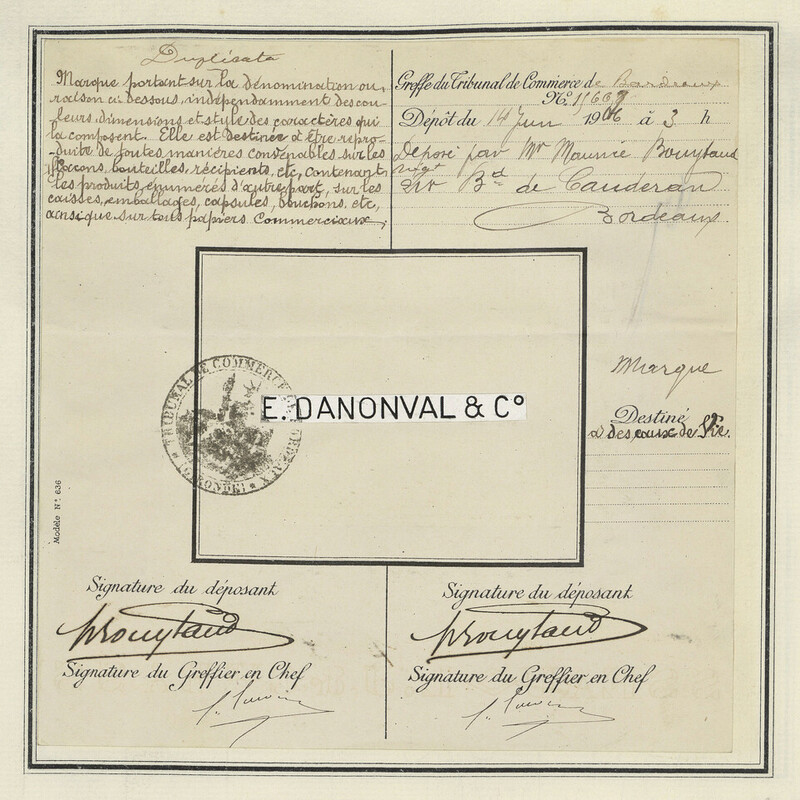 Duplicata
Marque portant sur la dénomination ou
raison ci dessous, indépendamment des cou
leurs, dimensions et style des caractères qui
la composent. Elle est destinée à être repro-
-duite de toutes manières convenables sur les
flacons, bouteilles, récipients, etc, contenant
les produits énumérés d'autre part, sur les
caisses, emballages, capsules, bouchons, etc,
ainsi que sur tous papiers Commerciaux,
Greffe du Tribunal de Commerce de Bordeaux
No.
Dépôt du 14 Juin 1906 à 3 h
Déposé par Mr Maurice Bouytaud
Bd de Cauderan
Bordeaux
TRIBUNAL DE COMMERCE BORDEAUX
(GIRONDE)
E. DANONVAL & Co
Marque
Destiné
à des eaux de Vie.
Modèle No. 636
Signature du déposant
Signature du déposant
Bouytaud
Bouytaud
Signature du Greffier en Chef
Signature du Greffier en Chef